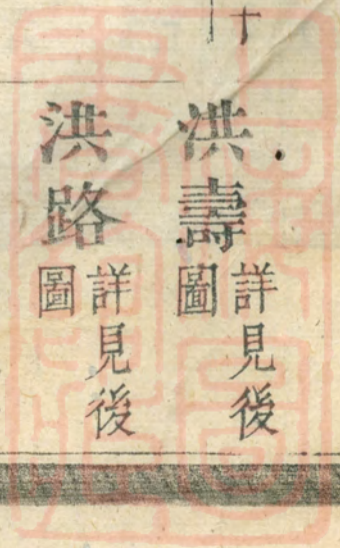 洪壽詳見後圖
洪路詳見後圖